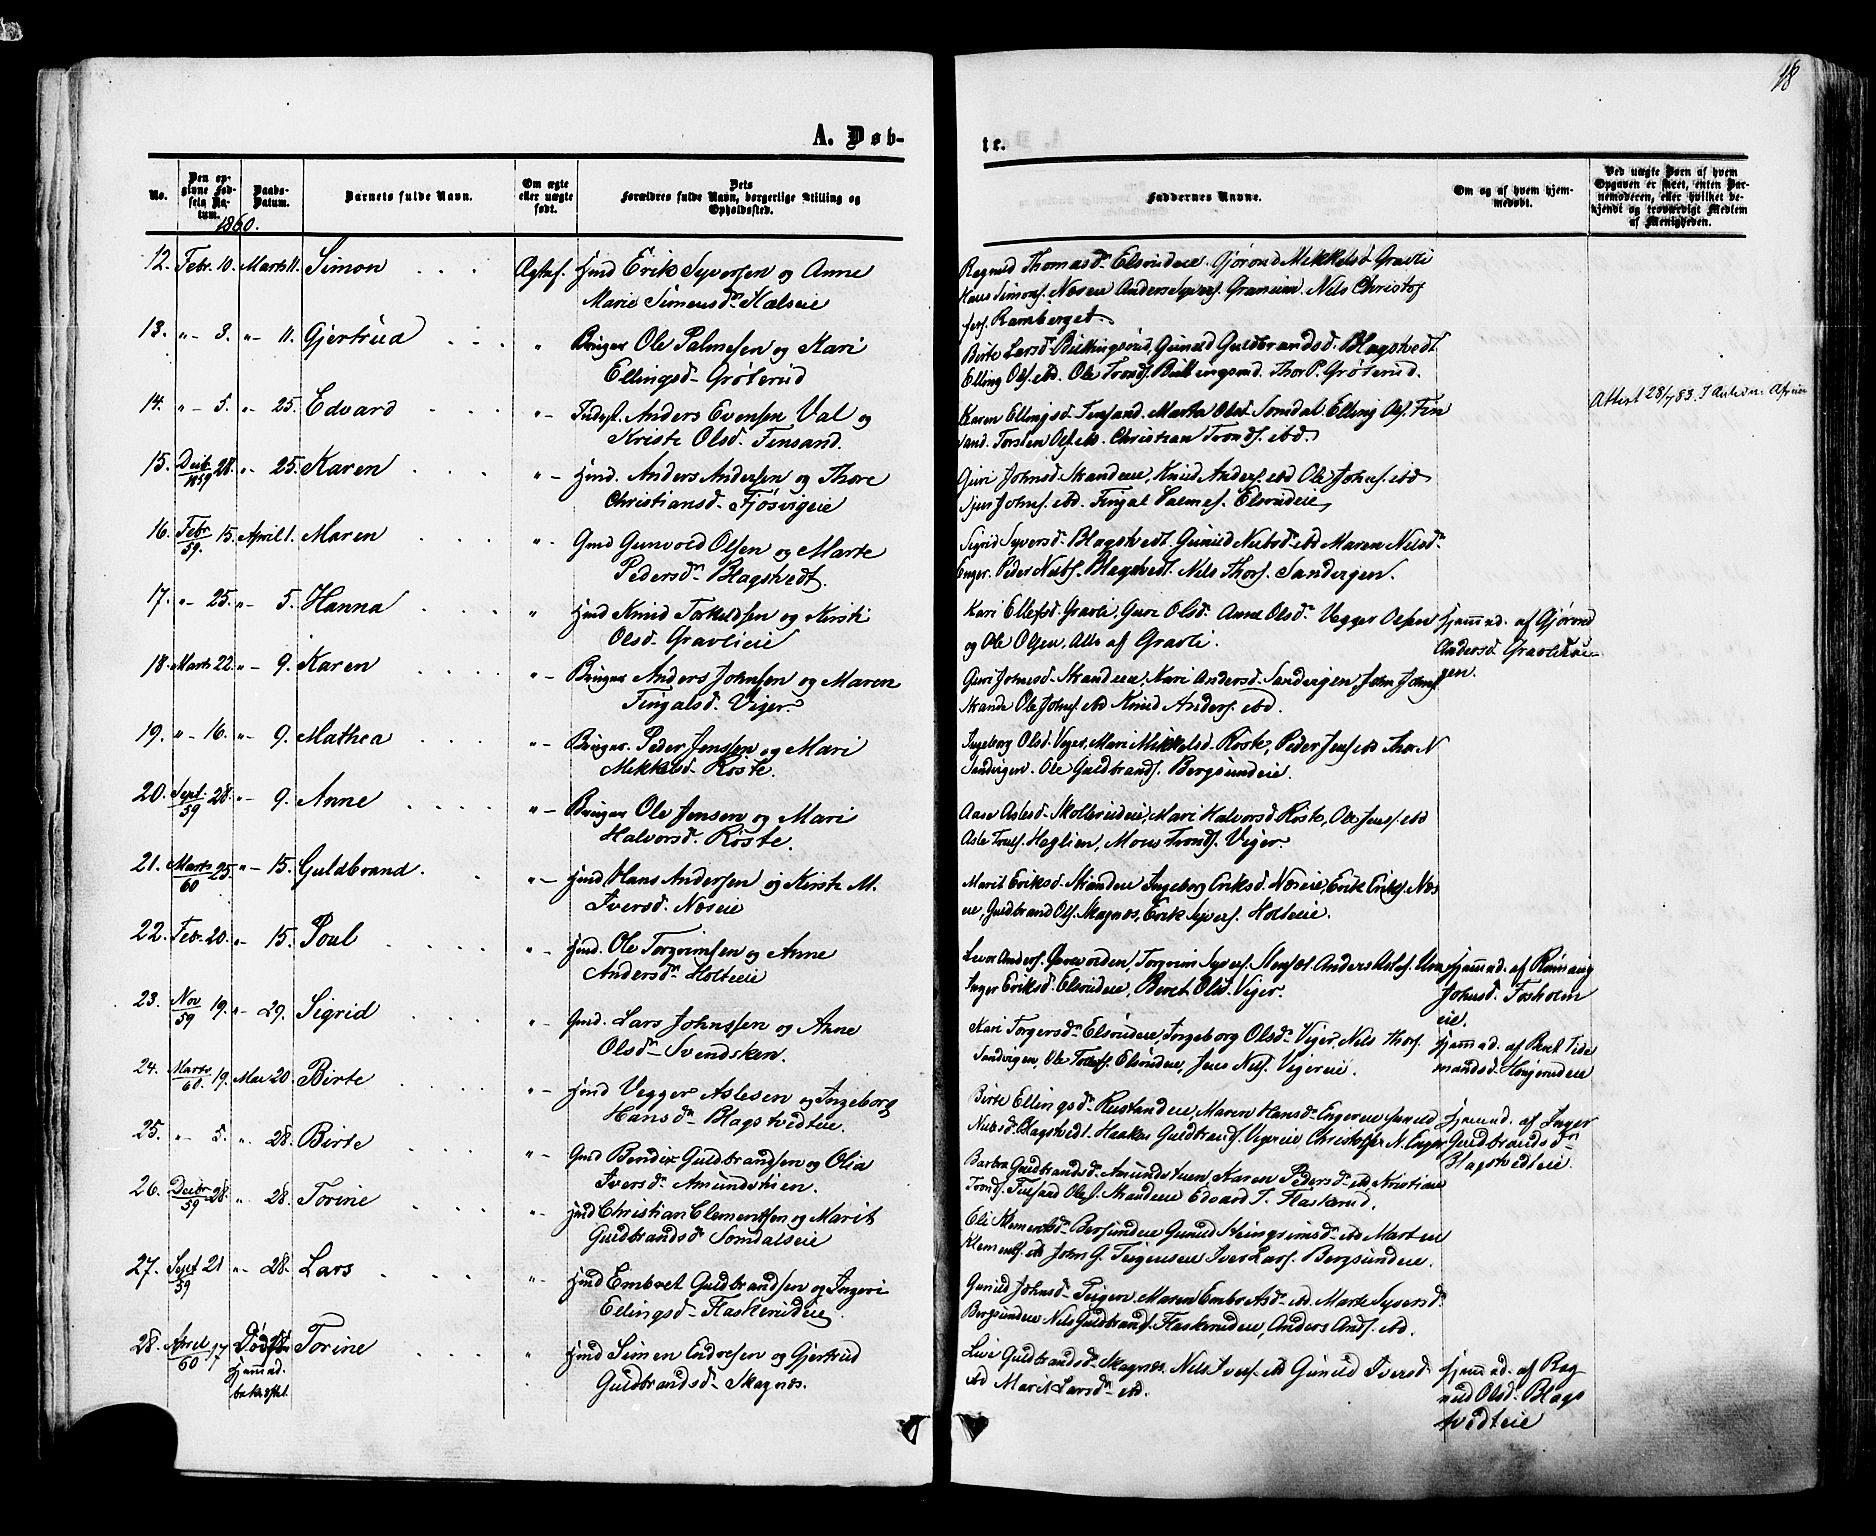 18
A. Døb-
te.
No.
Den opgivne Fødsels Datum.
Daabs-Datum.
Barnets fulde Navn.
Om ægte eller uægte født.
Dets Forældres fulde Navn, borgerlige Stilling og Opholdssted.
Faddernes Navne.
Om og af hvem hjemmedøbt.
Ved uægte Børn af hvem Opgaven er skeet, enten Barnemoderen, eller hvilket bekjendt og troværdigt Medlem af Menigheden.
1860.
12. Febr. 10. Marts 11. Simon Ægtef. Hmd Erik Syversen og Anne
Marie Simensdr Halseie
Ragnild Thomasdr Elsrudeie. Gjørond Mikkelsd Gravli
Hans Simons. Næseie Anders Syvers. Grameien. Nils Christof
fers. Ramberget.
13. " - 3. " - 11. Gjertrud " Bruger Ole Palmesen og Kari
Ellingsd. Grøterud
Birte Larsd. Buttingsrud, Gunild Guldbrandsd. Blagstvedt.
Elling Ols. ibd. Ole Tronds. Buttingsrud. Thor P. Grøterud.
14. " - 5. " - 25. Edvard " - Indyst. Anders Evensen Val og
Kriste Olsd. Finsand.
Karen Ellingsd. Finsand. Martha Olsd. Somdal Elling Ols. Fin
sand. Torsten Ols. ibd. Christian Tronds. ibd.
Attest 28/7 83.
15. Decbr 1859 28. " - 25. Karen " - Hmd. Anders Andersen og Thore
Christiansd. Fjøsvigeie
Guri Johnsd. Strandeie, Knud Anders. ibd Ole Johns. ibd
Sjur Johns. ibd. Fingal Palmes. Elsrudeie,
16. Febr 59. 15. April 1. Maren " - Gmd Gunvold Olsen og Marte
Pedersdr Blagstvedt.
Sigrid Syversd. Blagstvedt. Gunild Nielsdr ibd Maren Nilsdr
Enger. Peder Niels. Blagstvedt. Nils Thors. Sandvigen.
17. " - 25. " - 5. Hanna " Hmd Knud Torkeldsen og Kirsti
Olsd. Gravlieie
Kari Ellefsd. Gravli, Guri Olsd. Anne Olsdr Vegger Olsen
og Ole Olsen, Alle af Gravli.
Hjemmed. af Gjørond
Andersd. Gravlihau-
gen.
18. Marts 22. " - 9. Karen " - Bruger Anders Johnsen og Maren
Fingalsd. Viger.
Guri Johnsd. Strandeie, Kari Andersd. Sandvigen, John Johns.
Strande Ole Johns. ibd Knud Anders. ibd.
19. " - 16. " - 9. Mathea " - Bruger. Peder Jenssen og Mari
Mikkelsd. Røste.
Ingeborg Olsd. Viger, Mari Mikkelsd. Røste, Peder Jens. ibd Thor N
Sandvigen. Ole Guldbrands. Bergsundeie.
20. Sept. 59 28. " - 9. Anne " - Bruger Ole Jensen og Mari
Halvorsd. Røste.
Aase Aslesd. Skolbrudeie, Mari Halvorsd Røste, Ole Jens. ibd
Asle Trulss. Haglien, Mons Tronds. Viger.
21. Marts 60 25. " - 15. Guldbrand. " - Hmd Hans Andersen og Kirste M.
Iversd. Næseie
Marit Eriksd. Strandeie Ingeborg Eriksd. Næseie, Erik Eriks. Næs
eie, Guldbrand Ols. Skagnæs, Erik Syvers. Holteie.
22. Febr. 20. " - 15. Poul " - Hmd. Ole Torgrimsen og Anne
Andersdr Holteie
Torgrim Syvers. Anders Aslos.
Inger Eriksd. Elsrudeie, Beret Olsd. Viger.
Hjemmed. af Rønnaug
Johnsd. Fosholm
eie.
23. Nov 59 19. " - 29. Sigrid " - Gmd. Lars Johnssen og Anne
Olsdr Svendsken.
Kari Torgersdr Elsrudeie, Ingeborg Olsdr Viger, Nils Thors
Sandvigen, Ole Tolless. Elsrudeie, Jens Nils. Vigereie.
Hjemmed. af Beret Tide
mandsd. Hougerudeie
24. Marts 60. 19. Mai 20. Birte " - Hmd Vegger Aslesen og Ingeborg
Hansdr Blagstvedteie.
Birte Ellingsd. Rustandeie, Maren Hansdr Engereie Gunild
Nielsd. Blagstvedt. Haaken Guldbrands. Vigereie Christoffer N. Enger
Hjemmed. af Inger
Guldbrandsdr
Blagstvedteie.
25. " - 5. " 28. Birte " - Gmd Bendix Guldbrandsen og Olia
Iversdr Amundstuen.
Barbra Guldbrandsd. Amundstuen Karen Pedersd. ibd Kristian
Tronds. Finsand Ole Strandeie Edvard T. Flaskerud.
26. Decbr 59 28. " 28. Torine " - Hmd Christian Clementsen og Marit
Guldbrandsdr Somdalseie
Eli Klemetsd. Bersundeie Gunild Steingrimsd. ibd Martin
Klements. ibd John G. Teigeneie Iver Lars. Bergsundeie.
27. Sept 59 21 " - 28. Lars " - Hmd Embret Guldbrandsen og Ingeri
Ellingsd. Flaskerudeie,
Gunild Johnsd. Teigen, Maren Embretsd. ibd. Marte Syversdr
Bergsundeie Nils Guldbrands. Flaskerudeie, Anders Ands. ibd.
28. April 60 17 Døbt
Hjemmed.
bekræftet. Torine " Hmd Simen Endresen og Gjertrud
Guldbrandsdr Skagnæs.
Live Guldbrandsdr Skagnæs. Nils Ivers. ibd Gunild Iversd
ibd Marit Larsdr ibd.
Hjemmed. af Rag
nild Olsd. Blags
tvedteie